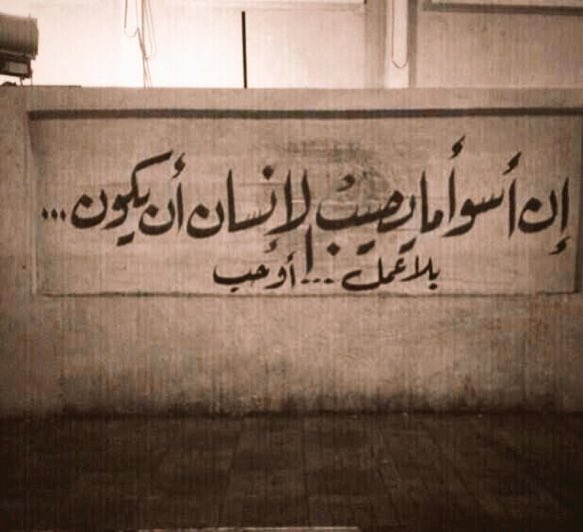 إن أسوأ ما يصيبُ الإنسان أن يكون...
بلا عمل ... أو حب